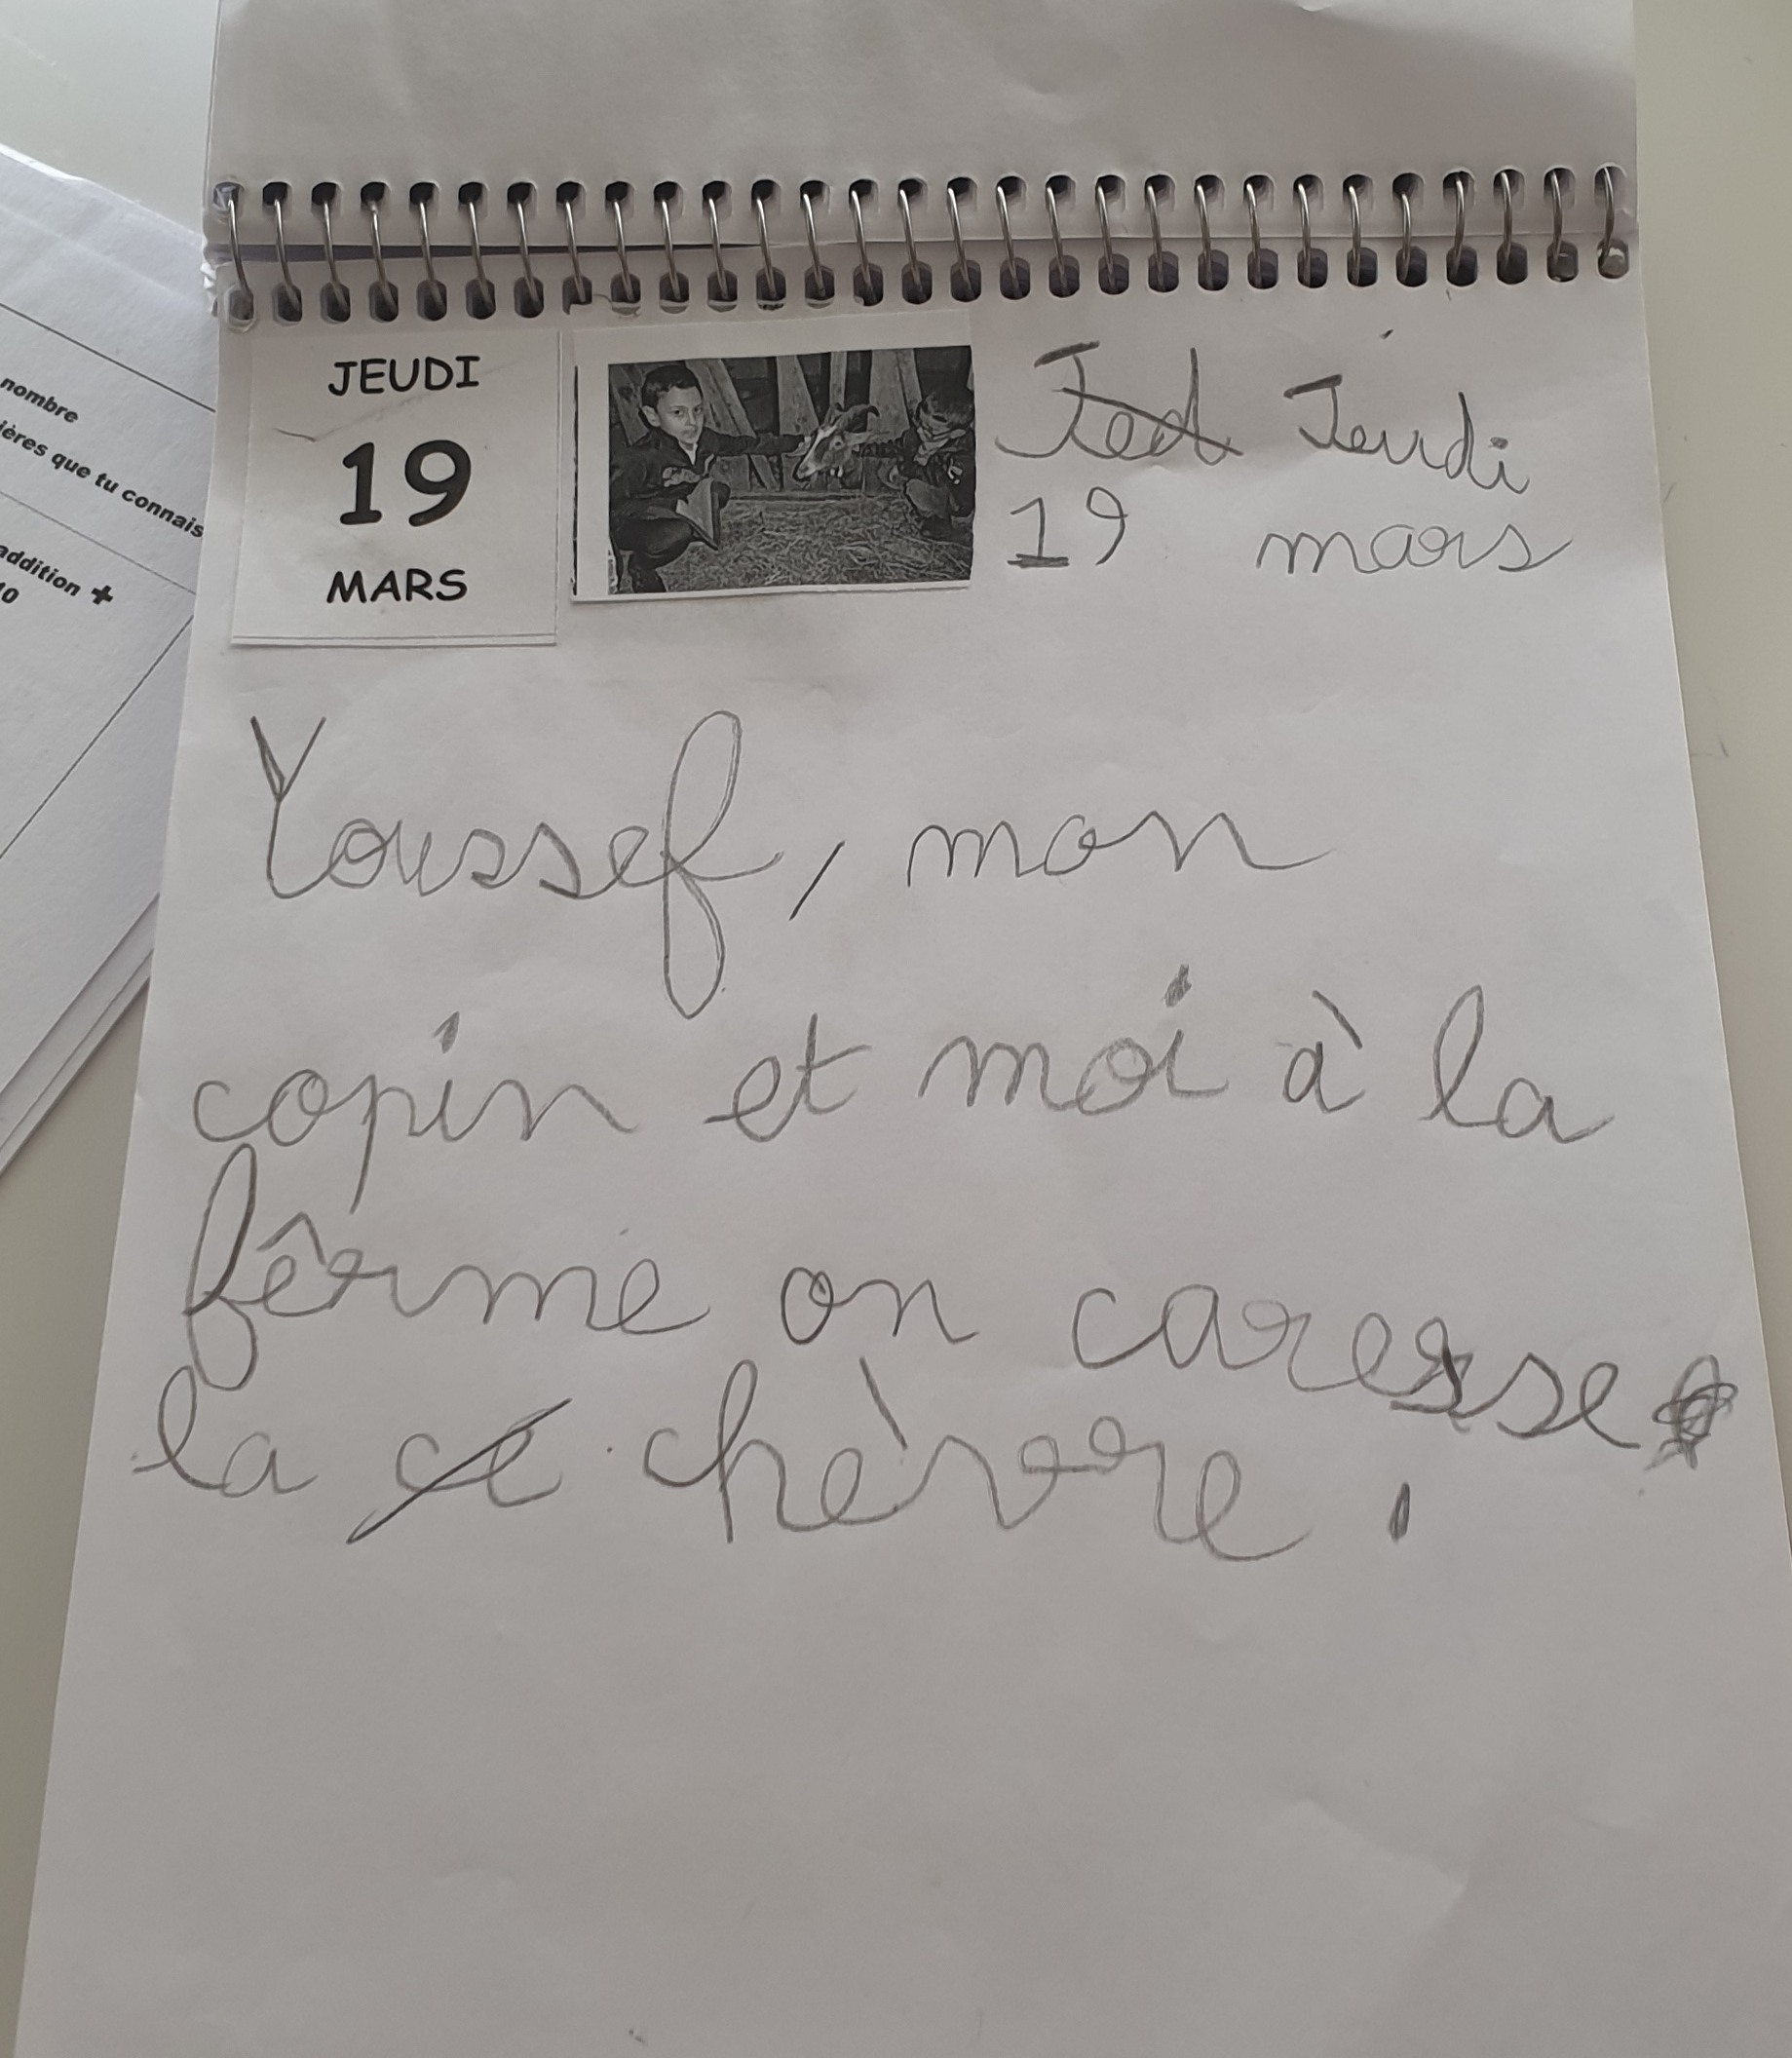 nombre
ières que tu connais
addition +
10
JEUDI
19
MARS
Jed Jeudi
19 mars
Youssef, mon
copin et moi à la
fêrme on caresse
la ce chèvre.